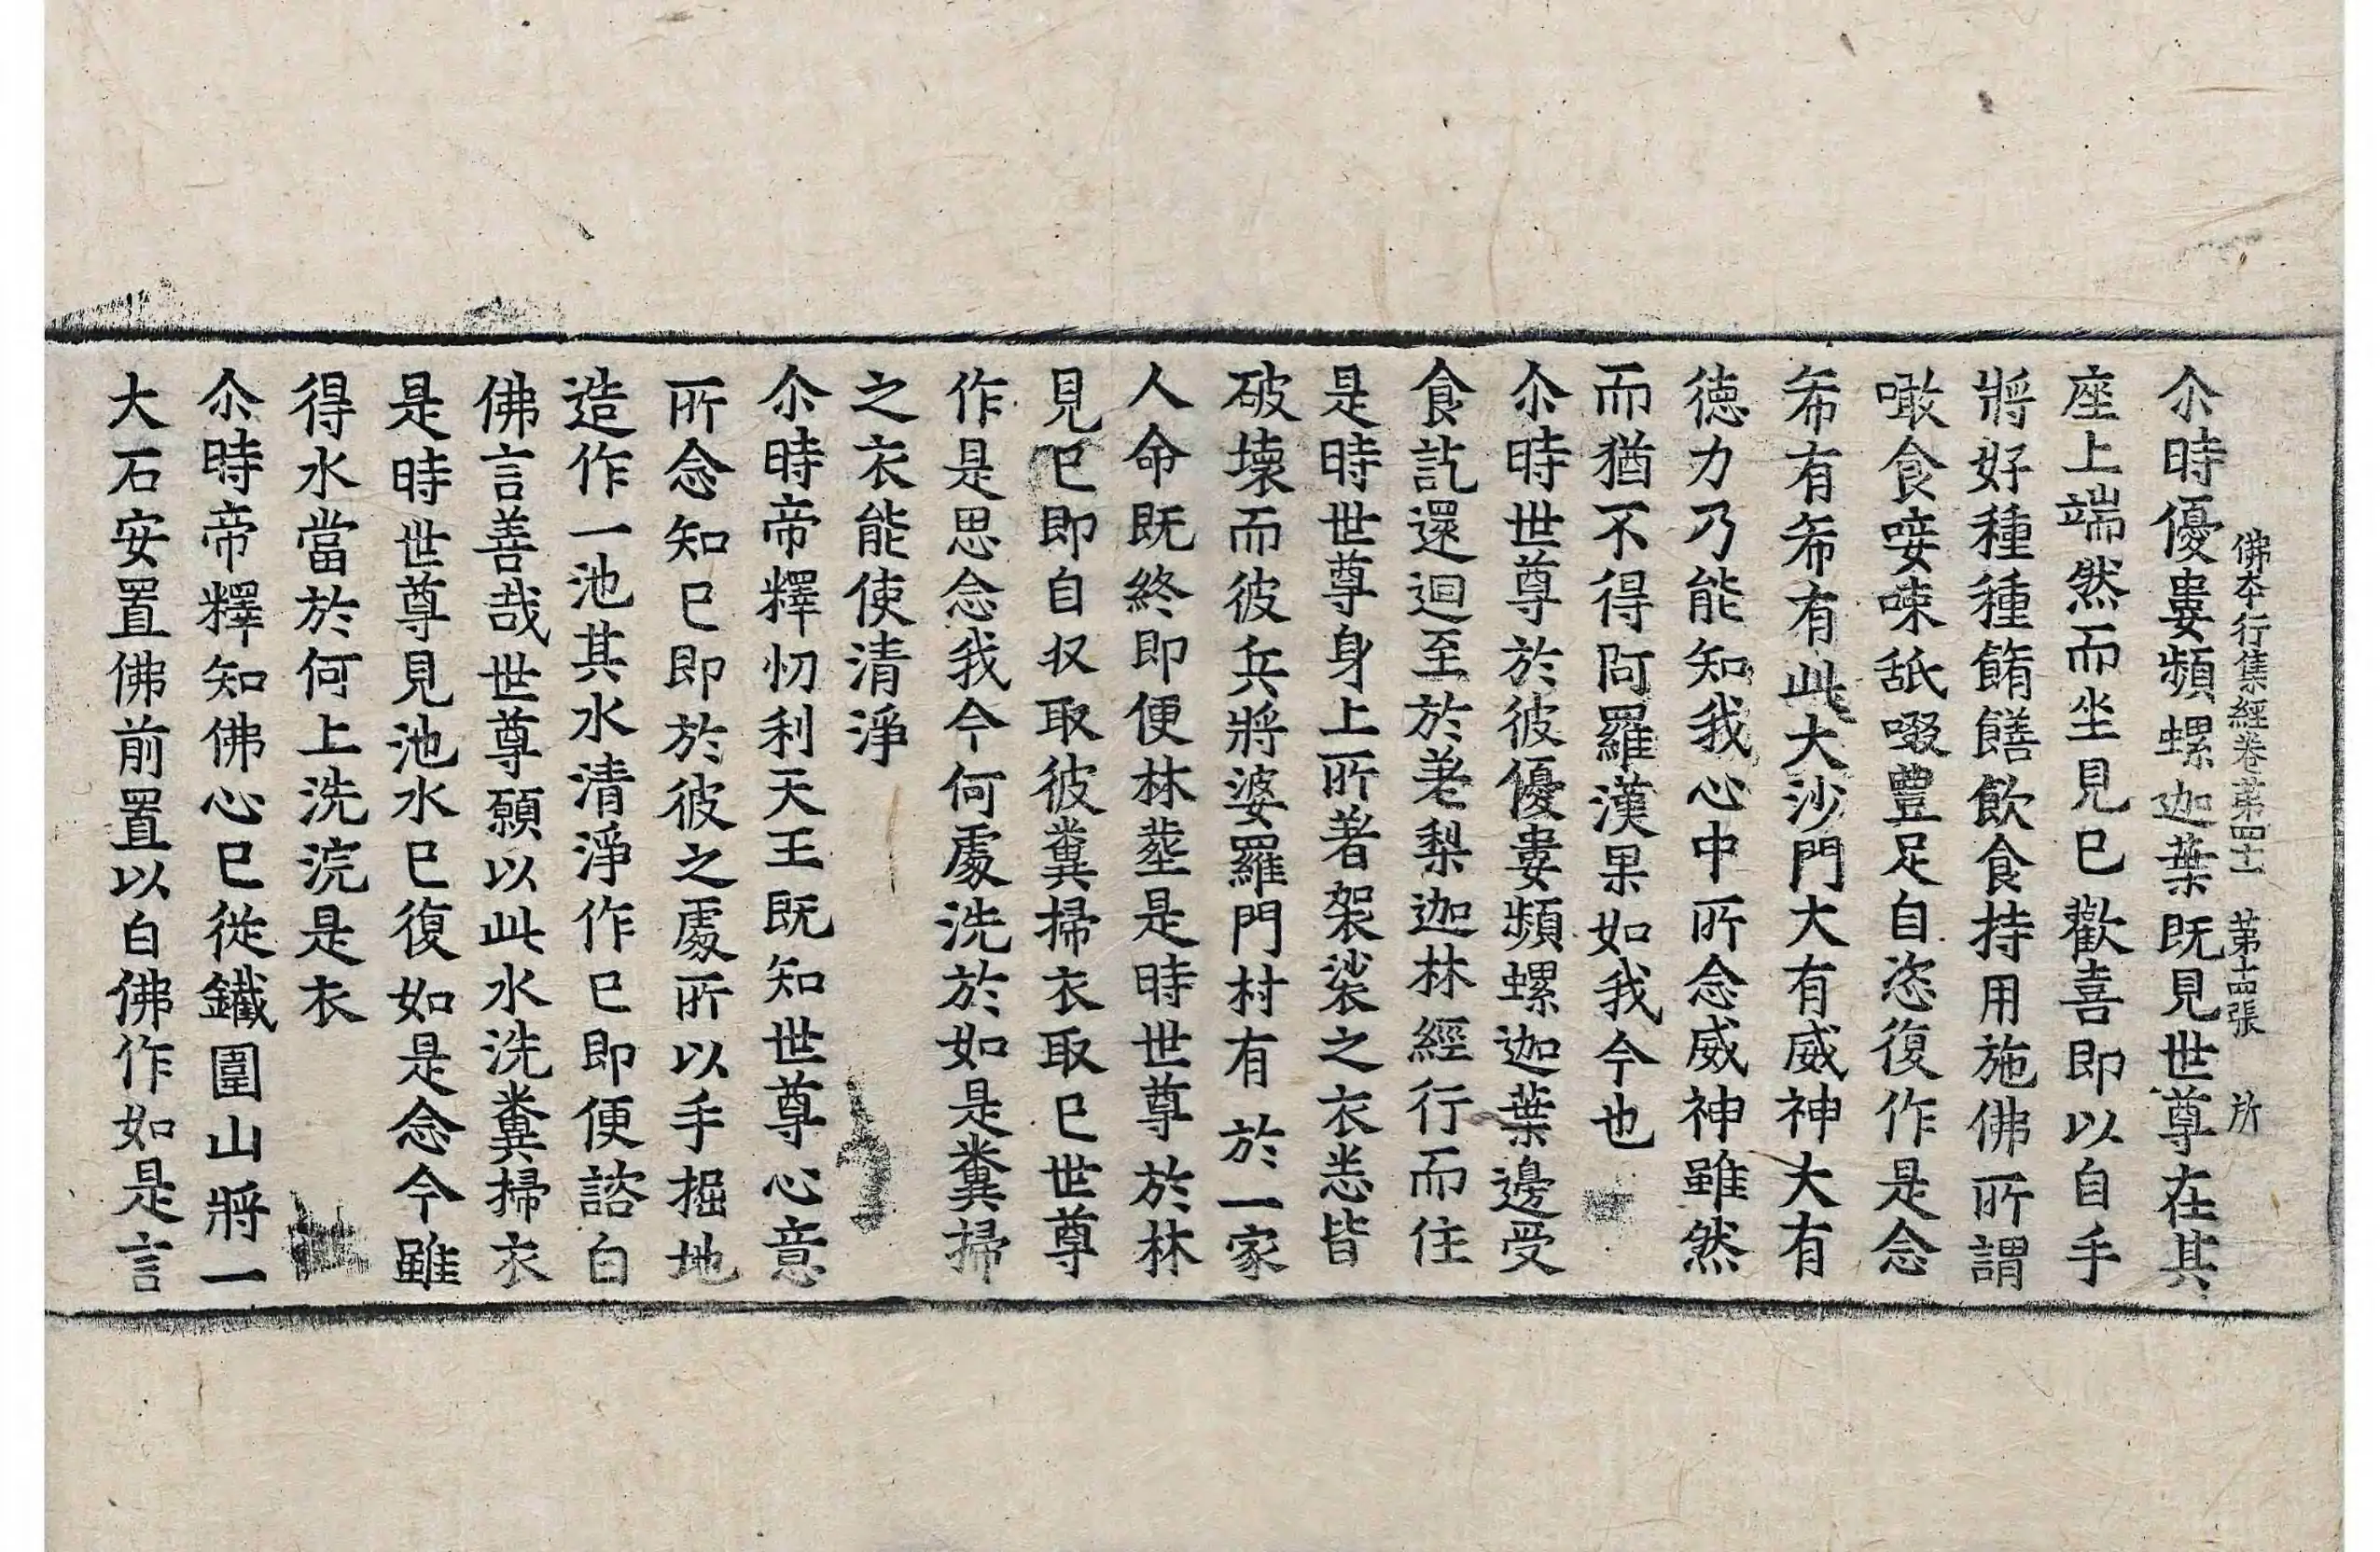 佛本行集經卷苐四十一　苐十四張　所
尒時優婁頻螺迦葉既見世尊在其
座上端然而坐見已歡喜即以自手
將好種種餚饍飲食持用施佛所謂
噉食唼㖨舐啜豊足自恣復作是念
希有希有此大沙門大有威神大有
徳力乃能知我心中所念威神雖然
而猶不得阿羅漢果如我今也
尒時世尊於彼優婁頻螺迦葉邊受
食訖還迴至於差梨迦林經行而住
是時世尊身上所著袈裟之衣悉皆
破壞而彼兵將婆羅門村有於一家
人命既終即便林塟是時世尊於林
見已即自収取彼糞掃衣取已世尊
作是思念我今何處洗於如是糞掃
之衣能使清淨
尒時帝釋忉利天王既知世尊心意
所念知已即於彼之處所以手掘地
造作一池其水清淨作已即便諮白
佛言善哉世尊願以此水洗糞掃衣
是時世尊見池水已復如是念今雖
得水當於何上洗浣是衣
尒時帝釋知佛心已從鐵圍山將一
大石安置佛前置以白佛作如是言